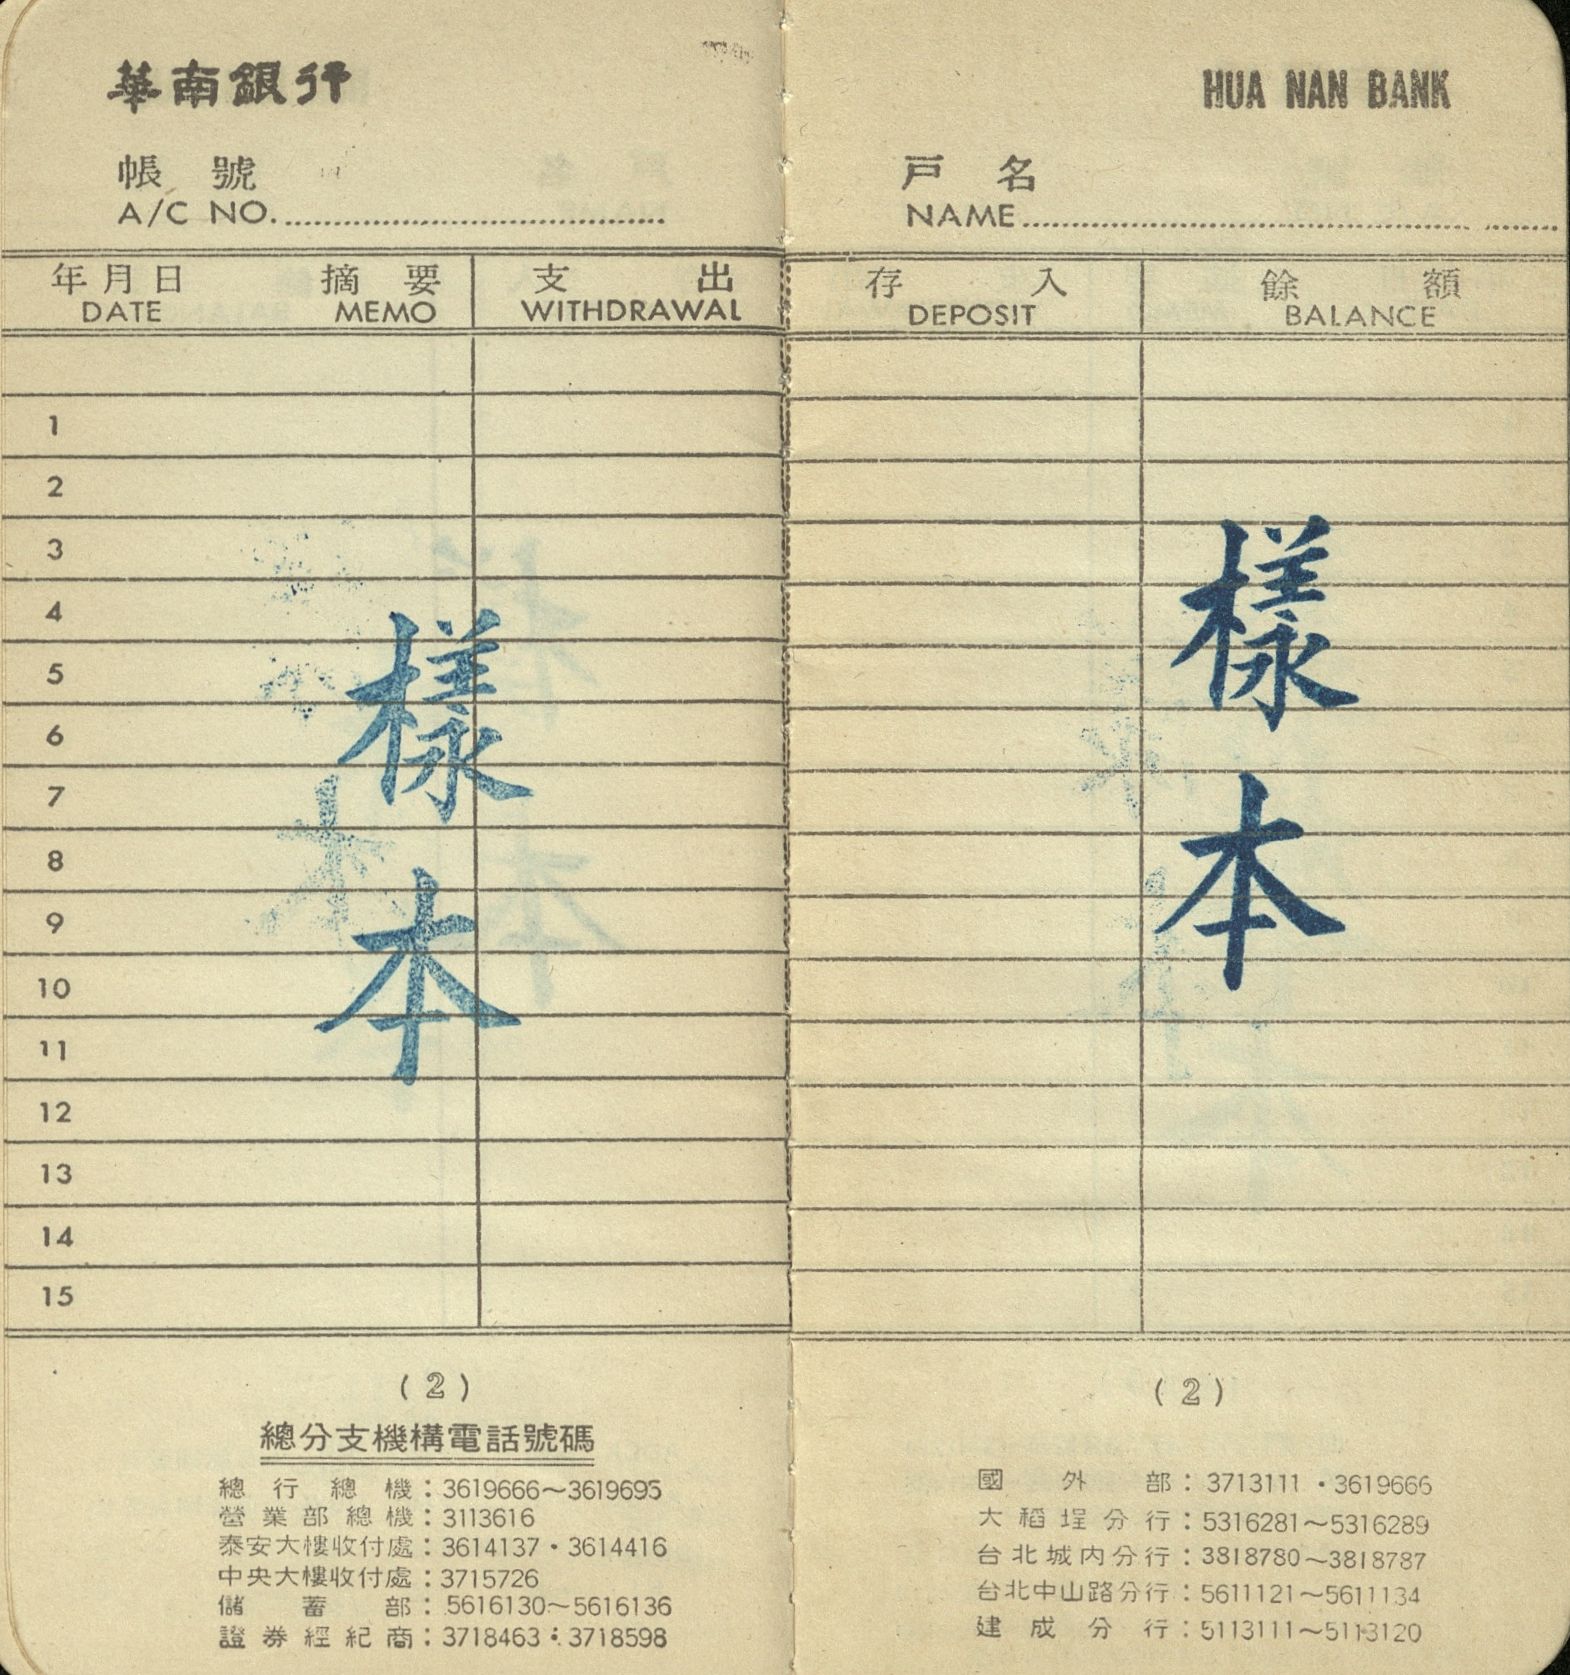 華南銀行
帳號
A/C NO.
年月日 摘要 支出
DATE MEMO WITHDRAWAL
1
2
3
4
5
6
7
8
9
10
11
12
13
14
15
樣本
(2)
總分支機構電話號碼
總行總機：3619666～3619695
營業部總機：3113616
泰安大樓收付處：3614137・3614416
中央大樓收付處：3715726
儲蓄部：5616130～5616136
證券經紀商：3718463・3718598
HUA NAN BANK
戶名
NAME
存入 餘額
DEPOSIT BALANCE
樣本
(2)
國外部：3713111・3619666
大稻埕分行：5316281～5316289
台北城內分行：3818780～3818787
台北中山路分行：5611121～5611134
建成分行：5113111～5113120